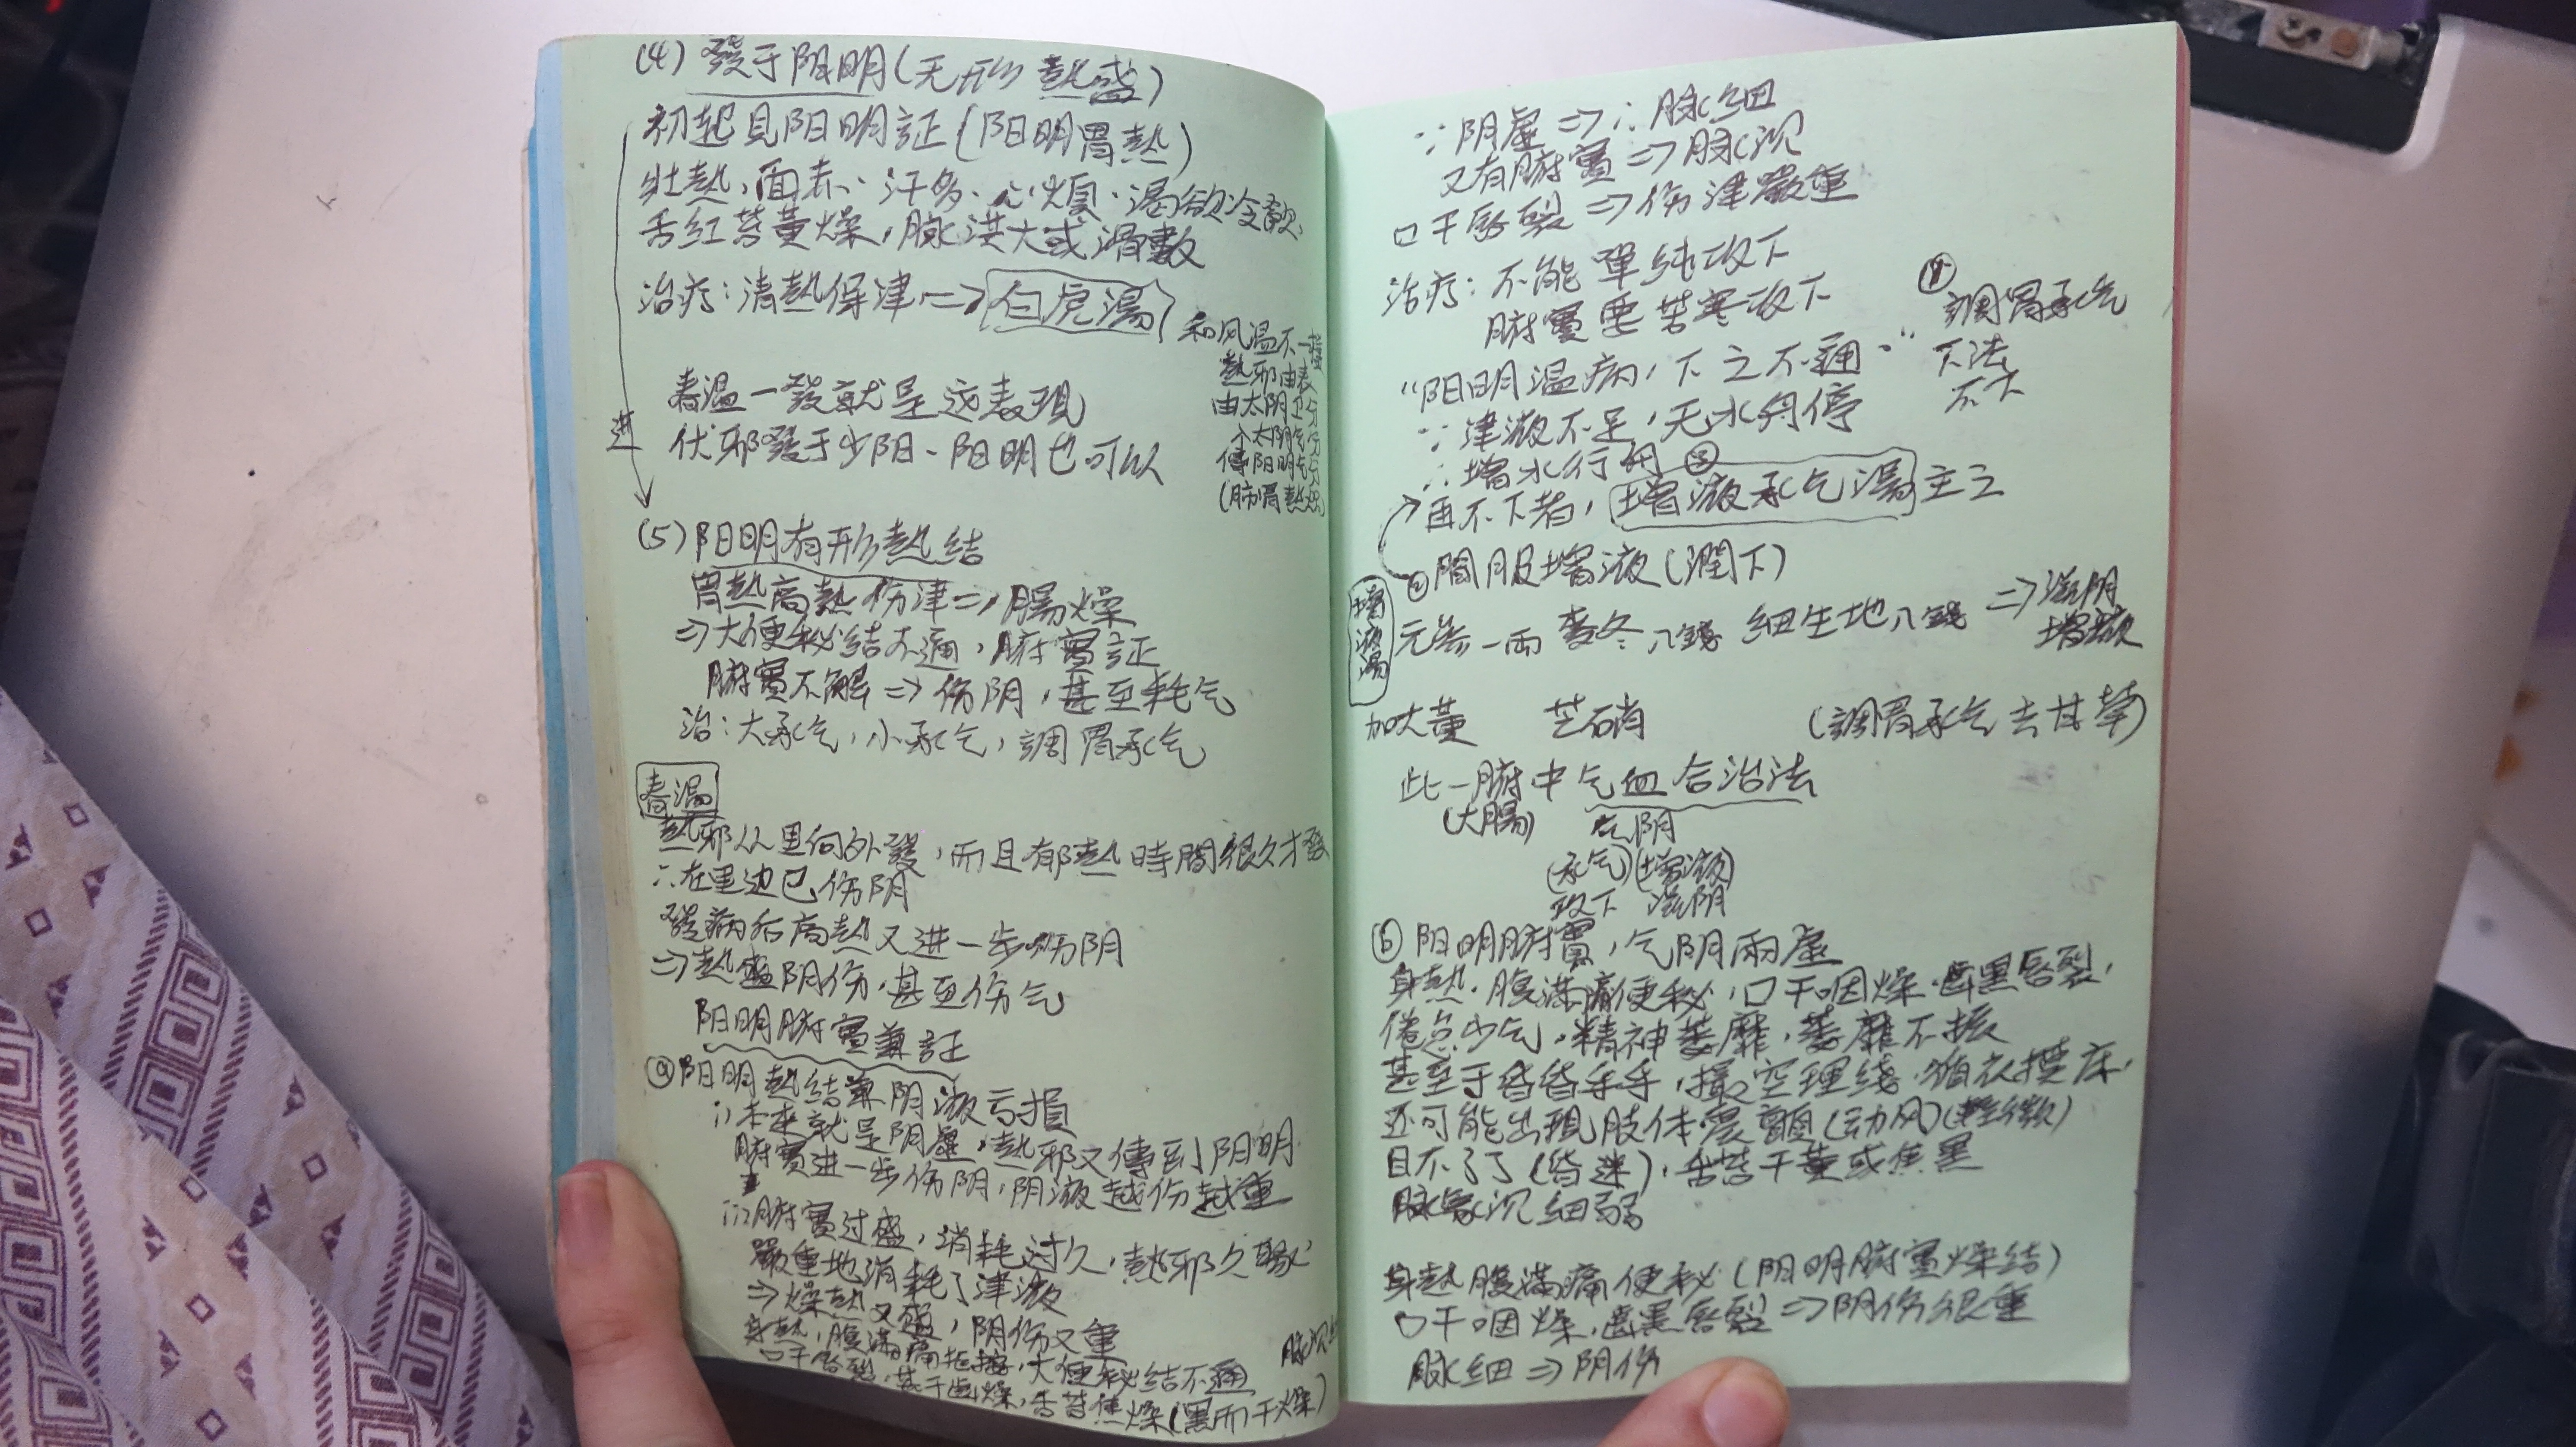 (4) 發于阳明(无形熱盛)
初起見阳明証(阳明胃熱)
壯熱、面赤、汗多、心煩、渴欲冷飲、
舌紅苔黃燥，脉洪大或滑數
治疗：清熱保津⇒白虎湯
和风温不一樣
熱邪由表
由太阴卫分
入太阴气分
傳阳明气分
(肺胃熱熾)
春温一發就是这表現
伏邪發于少阳、阳明也可以
进
(5)阳明有形熱結
胃熱高熱伤津⇒腸燥
⇒大便秘結不通，腑實証
腑實不解⇒伤阴，甚至耗气
治：大承气，小承气，調胃承气
春温
熱邪从里向外發，而且郁熱時間很久才發
∴在里边已伤阴
發病后高熱又进一步伤阴
⇒熱盛阴伤，甚至伤气
阳明腑實兼証
ⓐ阳明熱結兼阴液亏損
i)本来就是阴虛，熱邪又傳到阳明
腑實进一步伤阴，阴液越伤越重
ii)腑實过盛，消耗过久，熱邪久聚
嚴重地消耗了津液
⇒燥熱又盛，阴伤又重
身熱，腹滿痛拒按，大便秘結不通
口干唇裂，甚于齿燥，舌苔焦燥(黑而干燥)
脉沉
∵阴虛⇒∴脉細
又有腑實⇒脉沉
口干唇裂⇒伤津嚴重
治疗：不能單純攻下
腑實要苦寒攻下
①
調胃承气
下法
不大
“阳明温病，下之不通”
∵津液不足，无水舟停
∴增水行舟 ③
再不下者，增液承气湯主之
②間服增液(潤下)
增液湯
元参一両 麥冬八錢 細生地八錢 ⇒滋阴
增液
加大黃 芒硝 (調胃承气去甘草)
此一腑中气血合治法
(大腸) 气阴
(承气)(增液)
攻下 滋阴
ⓑ阳明腑實，气阴兩虛
身熱、腹滿痛便秘，口干咽燥、齒黑唇裂，
倦怠少气，精神萎靡，萎靡不振
甚至于昏昏乎乎，撮空理线，循衣摸床，
还可能出現肢体震顫(动风)(輕微)
目不了了(昏迷)，舌苔干黃或焦黑
脉象沉細弱
身熱腹滿痛便秘(阳明腑實燥結)
口干咽燥，齒黑唇裂⇒阴伤很重
脉細⇒阴伤